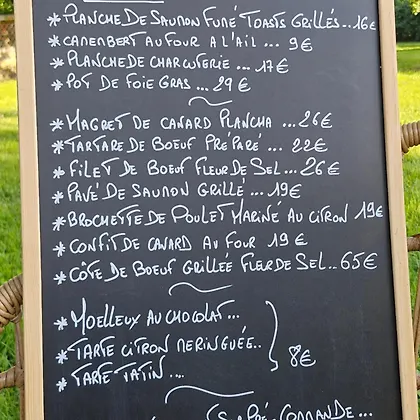 *PLANCHE DE SAUMON FUMÉ TOASTS GRILLÉS..16€
*CAMEMBERT AU FOUR A L'AIL ... 9€
*PLANCHE DE CHARCUTERIE ... 17€
*POT DE FOIE GRAS ... 29€
*MAGRET DE CANARD PLANCHA ... 26€
*TARTARE DE BOEUF PRÉPARÉ ... 22€
*FILET DE BOEUF FLEUR DE SEL ... 26€
*PAVÉ DE SAUMON GRILLÉ ... 19€
*BROCHETTE DE POULET MARINÉ AU CITRON 19€
*CONFIT DE CANARD AU FOUR 19€
*CÔTE DE BOEUF GRILLÉE FLEUR DE SEL.. 65€
*MOELLEUX AU CHOCOLAT...
*TARTE CITRON MERINGUÉE..
8€
*TARTE TATIN ...